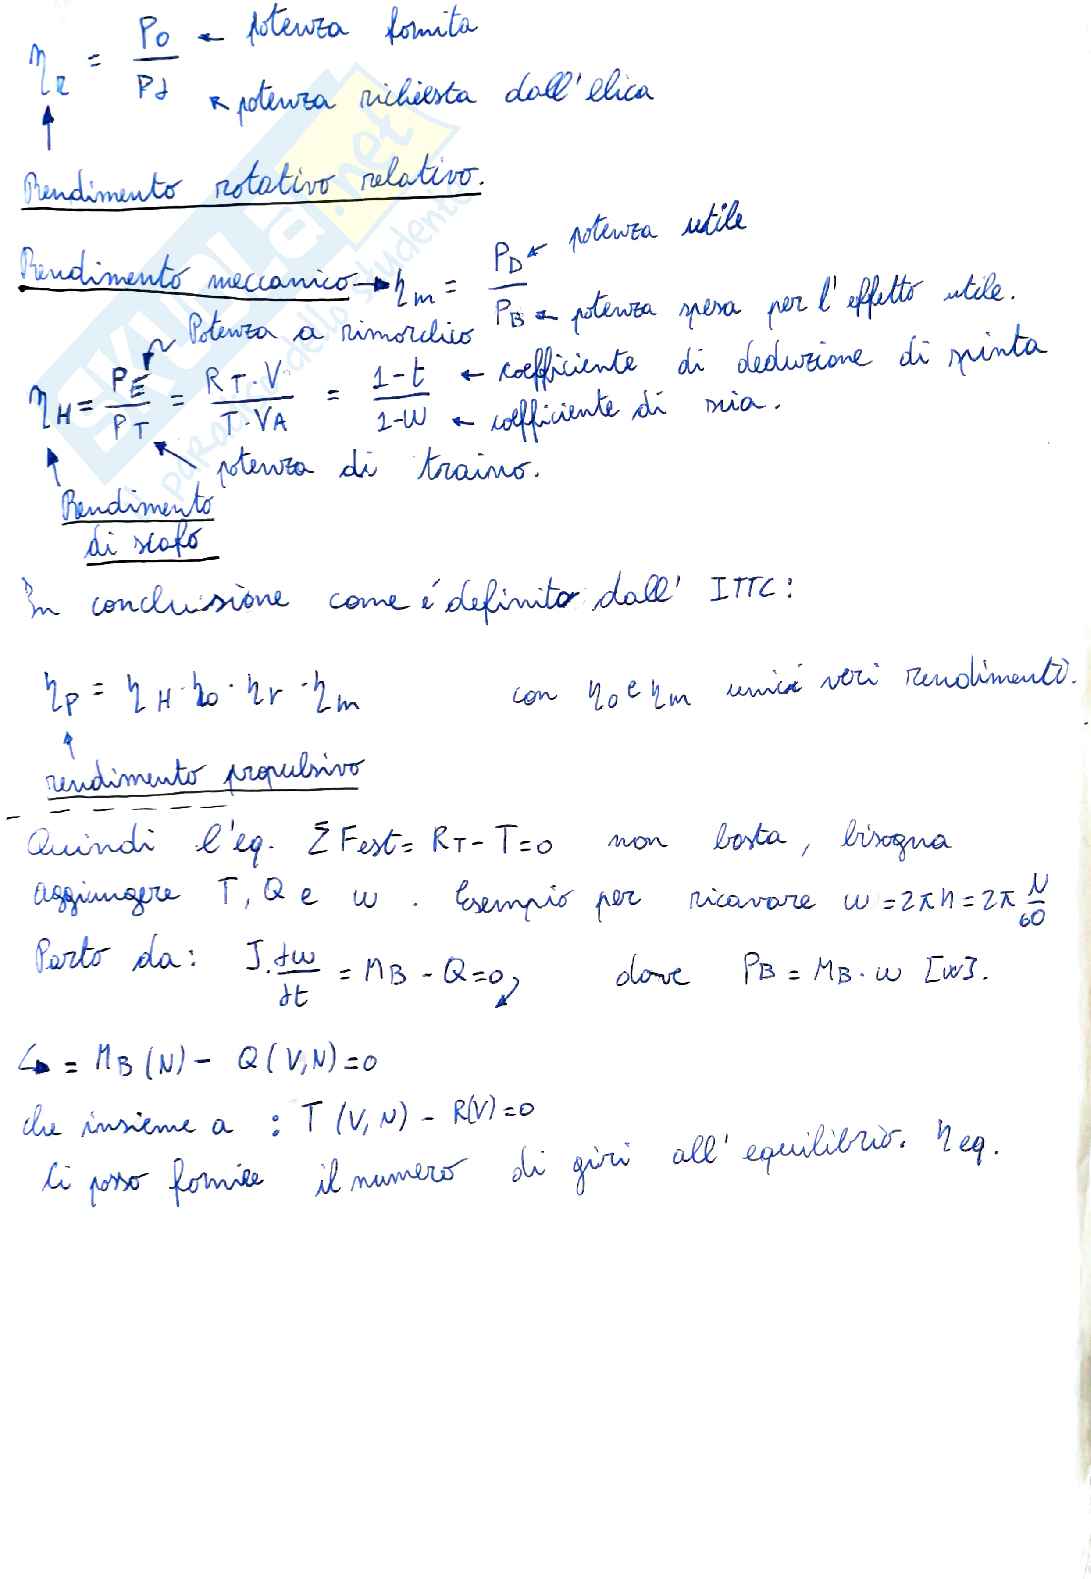 η_R = P_O / P_d ← potenza fornita
↖ potenza richiesta dall'elica
Rendimento rotativo relativo.
Rendimento meccanico → η_m = P_D / P_B ← potenza utile
← potenza spesa per l'effetto utile.
Potenza a rimorchio
η_H = P_E / P_T = R_T·V / T·V_A = 1-t / 1-w ← coefficiente di deduzione di spinta
← coefficiente di scia.
potenza di traino.
Rendimento
di scafo
In conclusione come é definito dall' ITTC:
η_P = η_H · η_o · η_r · η_m con η_o e η_m unici veri rendimenti.
rendimento propulsivo
Quindi l'eq. ΣFest = R_T - T = 0 non basta, bisogna
aggiungere T, Q e ω. Esempio per ricavare ω = 2πn = 2π N/60
Parto da: J · dω/dt = M_B - Q = 0, dove P_B = M_B · ω [W].
↳ = M_B (N) - Q (V,N) = 0
che insieme a : T (V,N) - R(V) = 0
Ci posso fornire il numero di giri all'equilibrio. η eq.
SKUOLA.net
paradiso dello studente